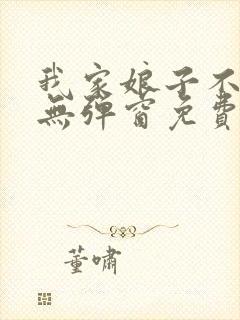 我家娘子不
無彈窗免費
董嘯